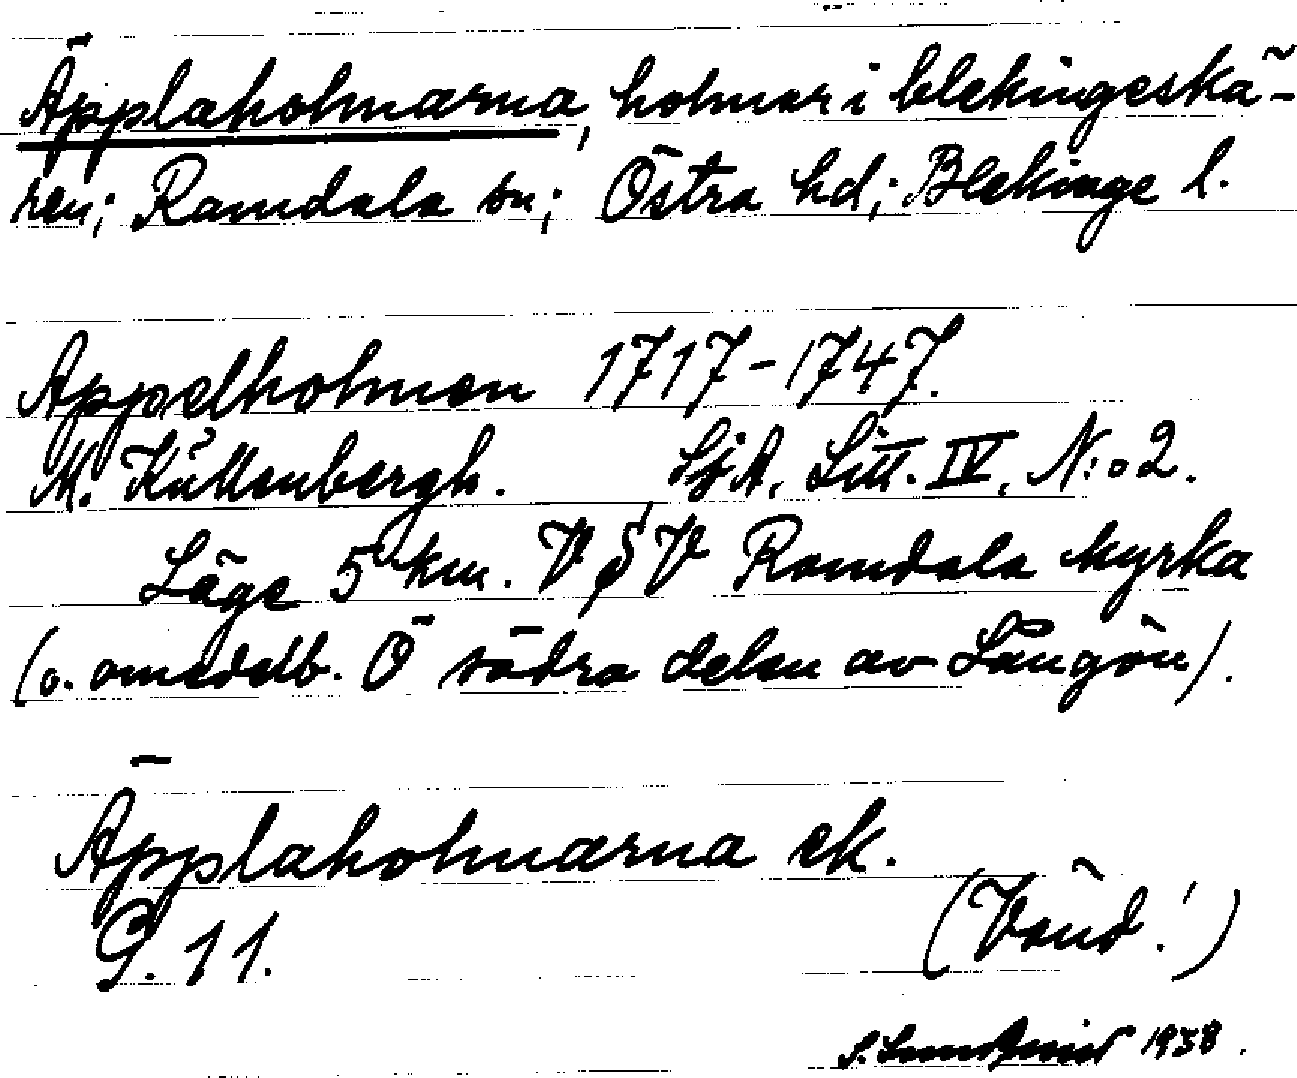 Äpplaholmarna, holmar i blekingeskä-
ren; Ramdala sn; Östra hd; Blekinge l.
Appelholmen 1717-1747.
M. Küllenbergh. SjA, Litt. IV, N:o 2.
Läge 5 km. V t V Ramdala kyrka
(o. omedelb. Ö södra delen av Långön).
Äpplaholmarna ek.
G. 11.
(Vänd!)
S. 1938.